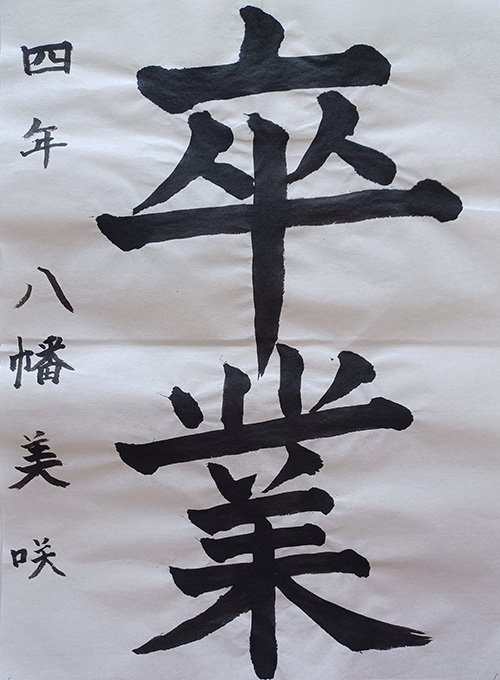 卒業
四年 八幡美咲